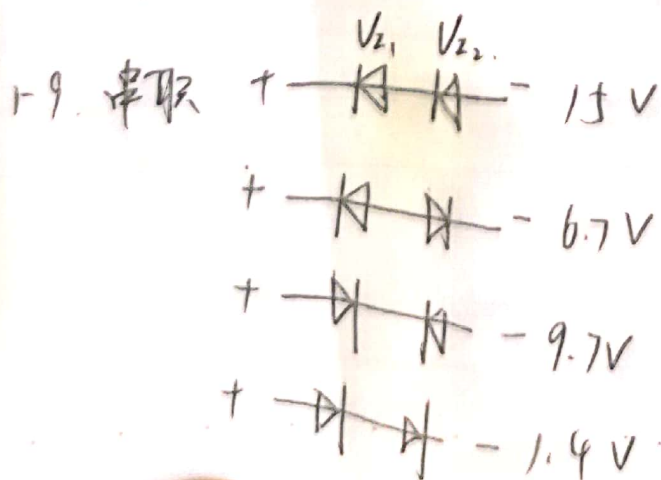 Vz₁ Vz₂.
1-9. 串联 + - 15 V
+ - 6.7 V
+ - 9.7V
+ - 1.4 V